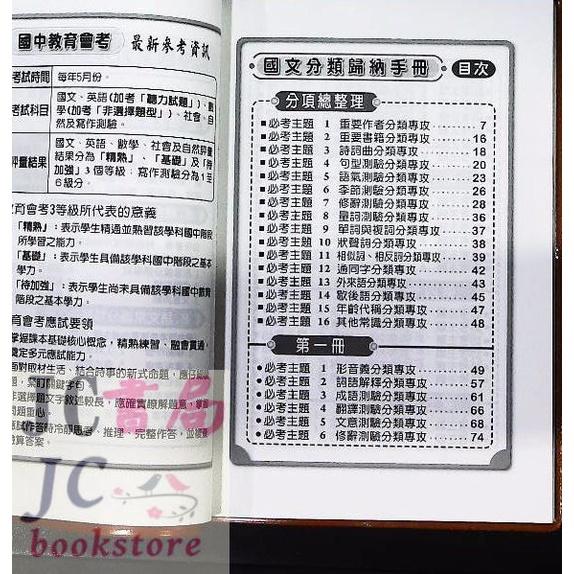 國中教育會考 最新參考資訊
考試時間 每年5月份。
考試科目 國文、英語(加考「聽力試題」)、數
學(加考「非選擇題型」)、社會、自
然及寫作測驗。
國文、英語、數學、社會及自然評量
評量結果 結果分為「精熟」、「基礎」及「待
加強」3個等級；寫作測驗分為1至
6級分。
教育會考3等級所代表的意義
「精熟」：表示學生精通並熟習該學科國中階段
所學習之能力。
「基礎」：表示學生具備該學科國中階段之基本
學力。
「待加強」：表示學生尚未具備該學科國中教育
階段之基本學力。
教育會考應試要領
掌握課本基礎核心概念，精熟練習、融會貫通，
奠定多元應試能力。
面對取材生活、結合時事的新式命題，應仔細
緊盯關鍵字句
選擇題文字敘述較長，應確實瞭解題意，掌握
題重心。
試作答時冷靜思考、推理、完整作答，並檢查
算答案。
國文分類歸納手冊 目次
分項總整理
必考主題 1 重要作者分類專攻 7
必考主題 2 重要書籍分類專攻 16
必考主題 3 詩詞曲分類專攻 18
必考主題 4 句型測驗分類專攻 20
必考主題 5 語氣測驗分類專攻 23
必考主題 6 季節測驗分類專攻 26
必考主題 7 修辭測驗分類專攻 28
必考主題 8 量詞測驗分類專攻 36
必考主題 9 單詞與複詞分類專攻 37
必考主題 10 狀聲詞分類專攻 38
必考主題 11 相似詞、相反詞分類專攻 39
必考主題 12 通同字分類專攻 42
必考主題 13 外來語分類專攻 43
必考主題 14 歇後語分類專攻 45
必考主題 15 年齡代稱分類專攻 47
必考主題 16 其他常識分類專攻 48
第一冊
必考主題 1 形音義分類專攻 49
必考主題 2 詞語解釋分類專攻 57
必考主題 3 成語測驗分類專攻 61
必考主題 4 翻譯測驗分類專攻 66
必考主題 5 文意測驗分類專攻 68
必考主題 6 修辭測驗分類專攻 74
JC書局
JC
bookstore